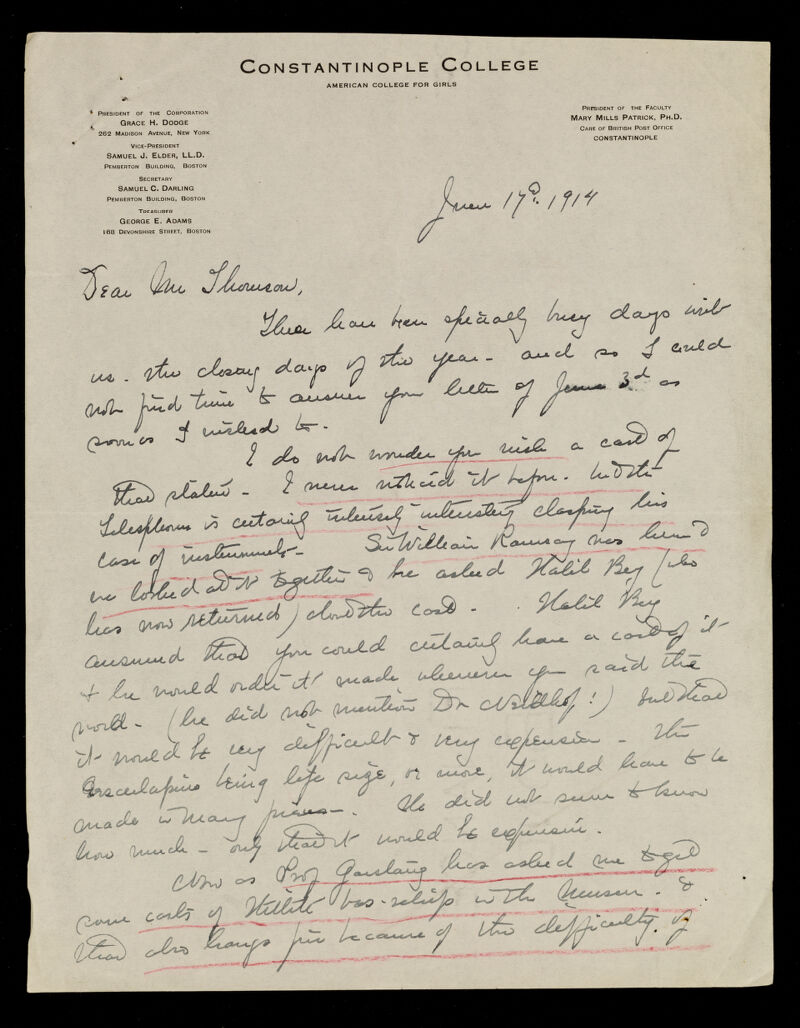 CONSTANTINOPLE COLLEGE
AMERICAN COLLEGE FOR GIRLS
PRESIDENT OF THE CORPORATION
GRACE H. DODGE
262 MADISON AVENUE, NEW YORK
VICE-PRESIDENT
SAMUEL J. ELDER, LL.D.
PEMBERTON BUILDING, BOSTON
SECRETARY
SAMUEL C. DARLING
PEMBERTON BUILDING, BOSTON
TREASURER
GEORGE E. ADAMS
168 DEVONSHIRE STREET, BOSTON
PRESIDENT OF THE FACULTY
MARY MILLS PATRICK, PH.D.
CARE OF BRITISH POST OFFICE
CONSTANTINOPLE
June 17th. 1914
Dear Mr Thomson,
These have been specially busy days with
us - the closing days of the year - and so I could
not find time to answer your letter of June 3d as
soon as I wished to.
I do not wonder you wish a cast of
that statue - I never noticed it before. but the
Telesphorus is certainly intensely interesting clasping his
case of instruments - Sir William Ramsay was here &
we looked at it together & he asked Halil Bey (who
has now returned) about the cast - . Halil Bey
answered that you could certainly have a cast of it
& he would order it made whenever you said the
word - (he did not mention Dr !) but that
it would be very difficult & very expensive - the
Aesculapius being life size, or more, it would have to be
made in many pieces - . He did not seem to know
how much - only that it would be expensive.
Now as Prof Garstang has asked me to get
some casts of Hittite bas-reliefs in the Museum - &
that also hangs fire because of the difficulty of